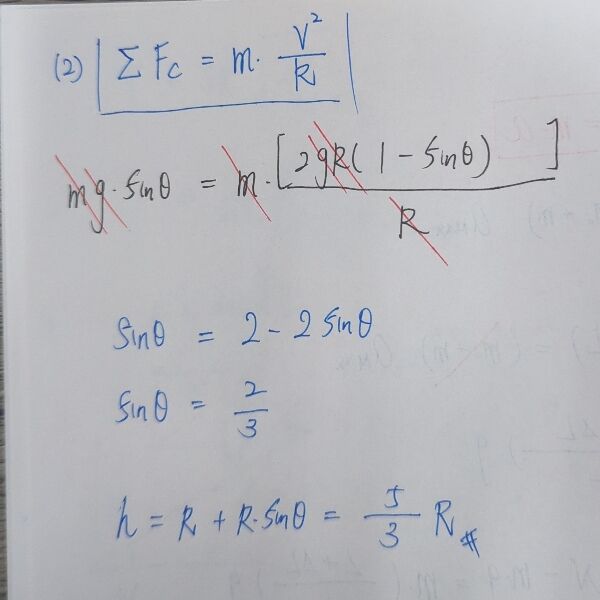 (2) Σ Fc = m · V²/R
mg · sinθ = m · [2gR(1 - sinθ)]/R
sinθ = 2 - 2 sinθ
sinθ = 2/3
h = R + R·sinθ = 5/3 R #